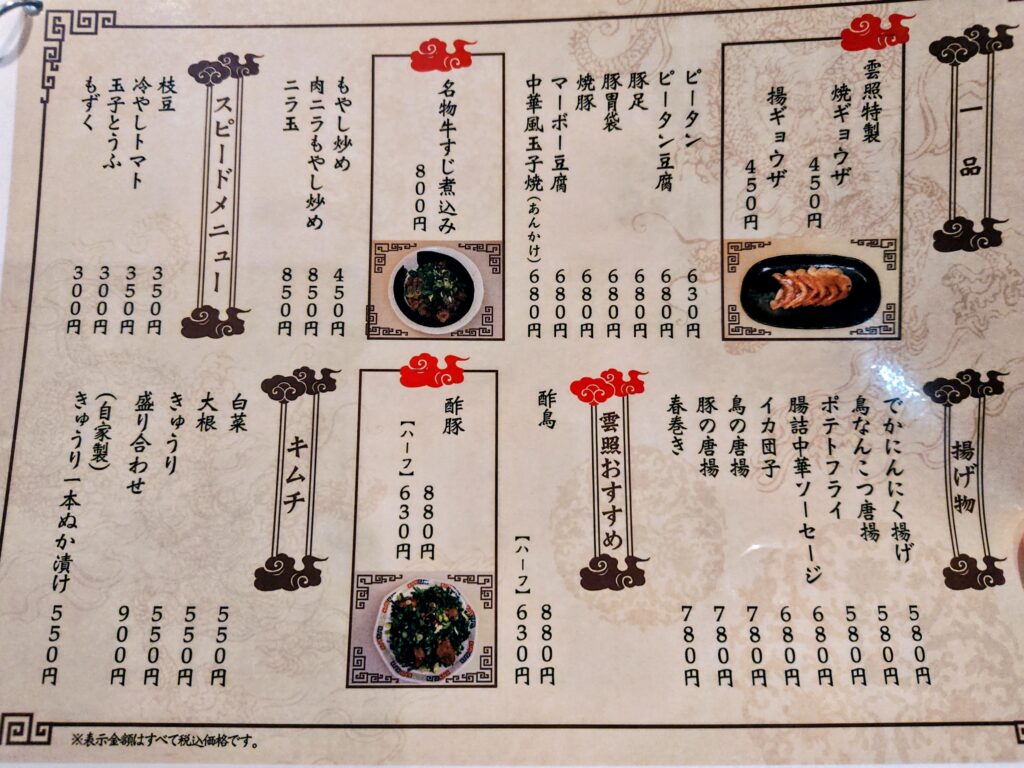 一品
雲照特製
焼ギョウザ 450円
揚ギョウザ 450円
ピータン 630円
ピータン豆腐 680円
豚足 680円
豚胃袋 680円
焼豚 680円
マーボー豆腐 680円
中華風玉子焼(あんかけ) 680円
名物牛すじ煮込み
800円
もやし炒め 450円
肉ニラもやし炒め 850円
ニラ玉 850円
スピードメニュー
枝豆 350円
冷やしトマト 350円
玉子とうふ 300円
もずく 300円
揚げ物
でかにんにく揚げ 580円
鳥なんこつ唐揚 580円
ポテトフライ 580円
腸詰中華ソーセージ 680円
イカ団子 680円
鳥の唐揚 780円
豚の唐揚 780円
春巻き 780円
雲照おすすめ
酢鳥 880円
【ハーフ】630円
酢豚
880円
【ハーフ】630円
キムチ
白菜 550円
大根 550円
きゅうり 550円
盛り合わせ 900円
(自家製)
きゅうり一本ぬか漬け 550円
※表示金額はすべて税込価格です。